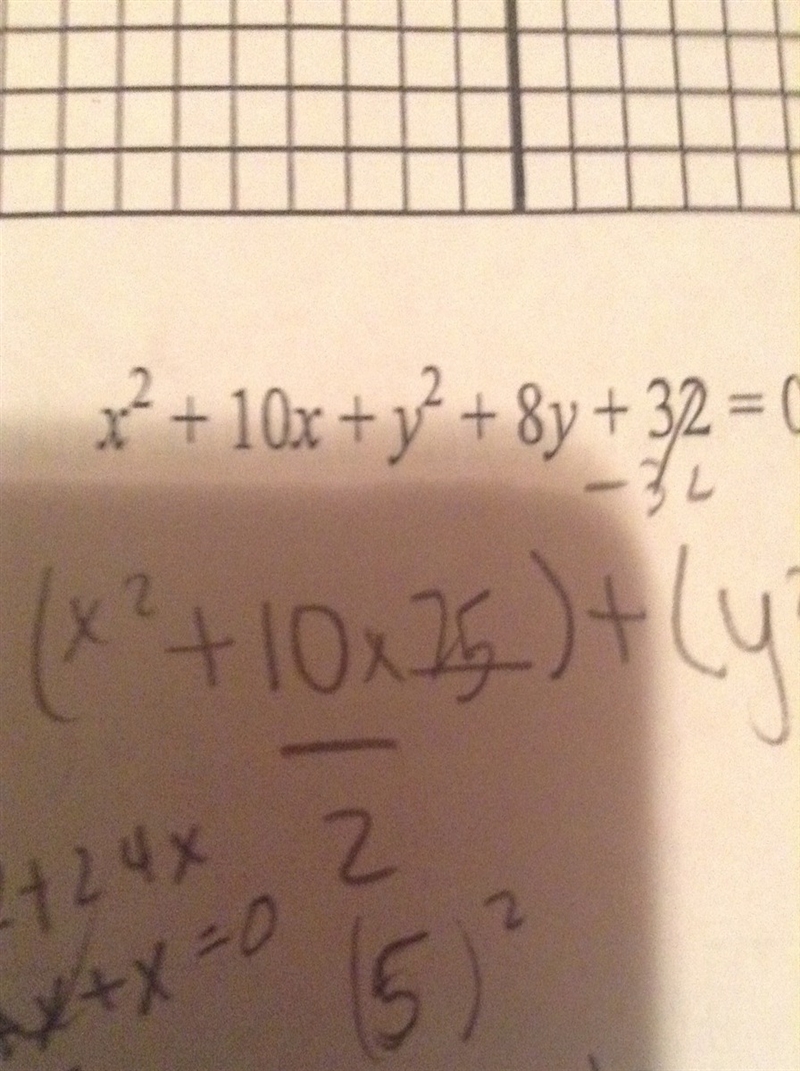 x² + 10x + y² + 8y + 32 = 0
- 32
(x² + 10x 25) + (y²
2
2+24x
x+x =0
(5)²